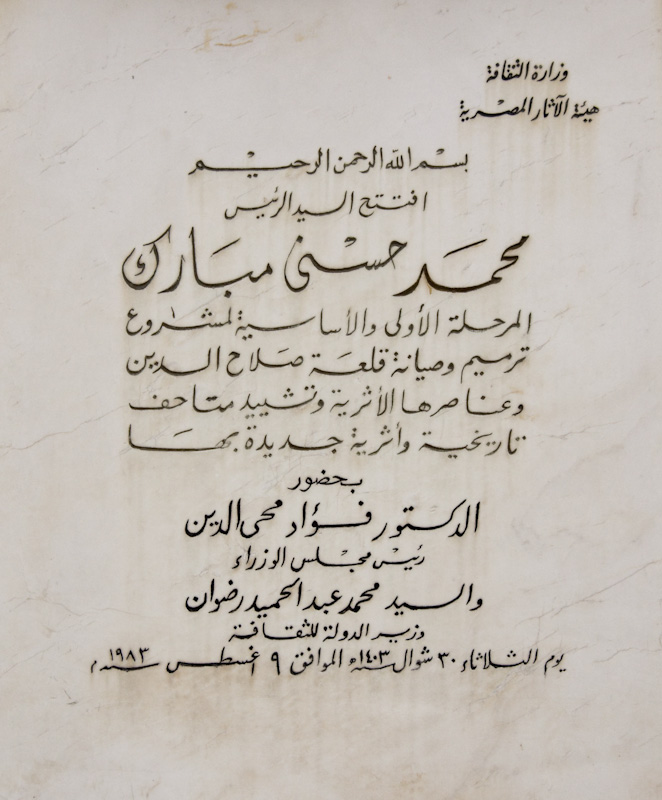 وزارة الثقافة
هيئة الآثار المصرية
بسم الله الرحمن الرحيم
افتتح السيد الرئيس
محمد حسنى مبارك
المرحلة الأولى والأساسية لمشروع
ترميم وصيانة قلعة صلاح الدين
وعناصرها الأثرية وتشييد متاحف
تاريخية وأثرية جديدة بها
بحضور
الدكتور فؤاد محى الدين
رئيس مجلس الوزراء
والسيد محمد عبد الحميد رضوان
وزير الدولة للثقافة
يوم الثلاثاء ٣٠ شوال سنة ١٤٠٣ هـ الموافق ٩ أغسطس سنة ١٩٨٣ م